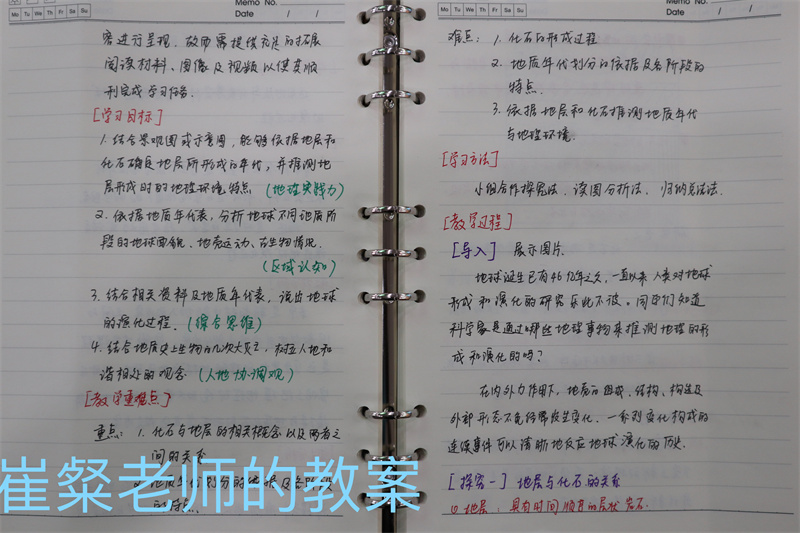 Memo No.
Mo Tu We Th Fr Sa Su
Date / /
容进行呈现，教师需提供充足的拓展
阅读材料、图像及视频以使其顺
利完成学习任务.
[学习目标]
1. 结合景观图或示意图，能够依据地层和
化石确定地层所形成的年代，并推测地
层形成时的地理环境特点 (地理实践力)
2. 依据地质年代表，分析地球不同地质阶
段的地球面貌、地壳运动、古生物情况.
(区域认知)
3. 结合相关资料及地质年代表，说出地球
的演化过程. (综合思维)
4. 结合地质史上生物的几次大灭亡，树立人地和
谐相处的观念 (人地协调观)
[教学重难点]
重点： 1. 化石与地层的相关概念以及两者之
间的关系
2. 地质年代划分的依据及各阶段
的特点.
崔粲老师的教案
Memo No.
Mo Tu We Th Fr Sa Su
Date / /
难点： 1. 化石的形成过程
2. 地质年代划分的依据及各阶段的
特点.
3. 依据地层和化石推测地质年代
与地理环境.
[学习方法]
小组合作探究法、读图分析法、归纳总结法.
[教学过程]
[导入] 展示图片.
地球诞生已有46亿年之久，一直以来人类对地球
形成和演化的研究乐此不疲。同学们知道
科学家是通过哪些地理事物来推测地球的形
成和演化的吗？
在内外力作用下，地质的组成、结构、构造及
外部形态不断的发生变化. 一系列变化构成的
连续事件可以清晰地反应地球演化的历史.
[探究一] 地层与化石的关系
① 地层：具有时间顺序的层状岩石.